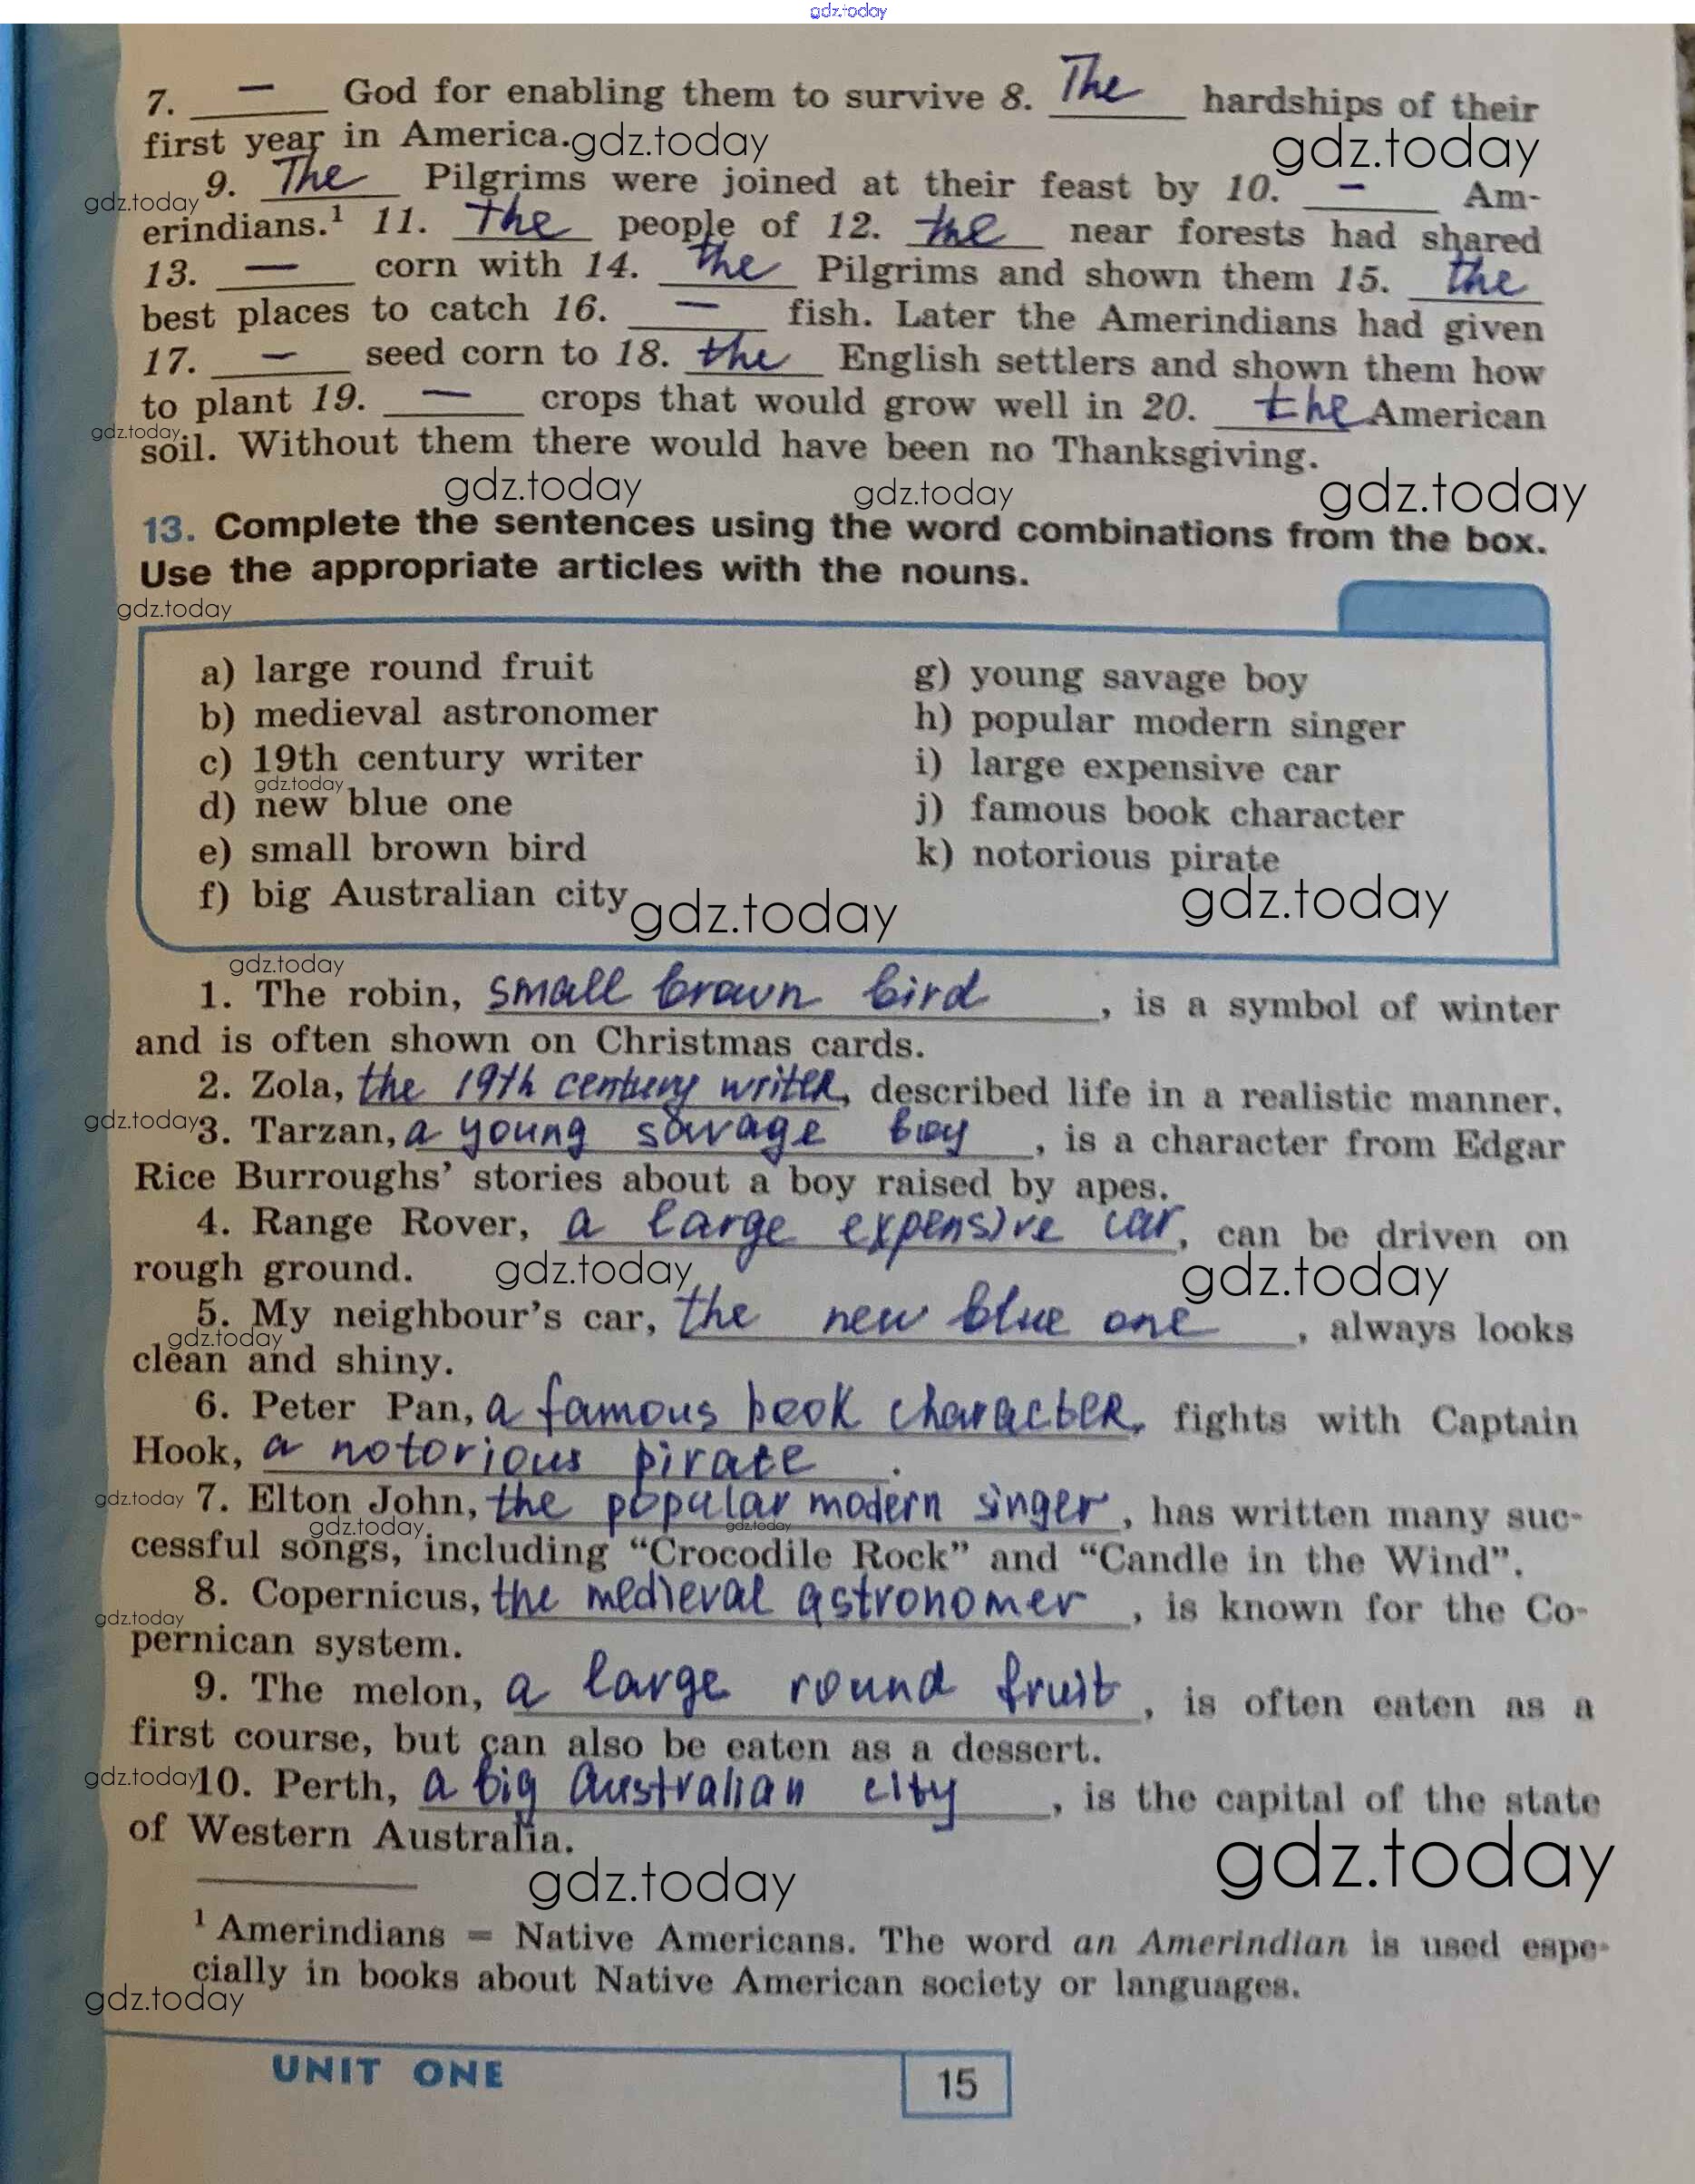 gdz.today
7. — God for enabling them to survive 8. The hardships of their
first year in America. gdz.today gdz.today
gdz.today 9. The Pilgrims were joined at their feast by 10. — Am-
erindians.¹ 11. the people of 12. the near forests had shared
13. — corn with 14. the Pilgrims and shown them 15. the
best places to catch 16. — fish. Later the Amerindians had given
17. — seed corn to 18. the English settlers and shown them how
to plant 19. — crops that would grow well in 20. the American
gdz.today
soil. Without them there would have been no Thanksgiving.
gdz.today gdz.today gdz.today
13. Complete the sentences using the word combinations from the box.
Use the appropriate articles with the nouns.
gdz.today
a) large round fruit
b) medieval astronomer
c) 19th century writer
gdz.today
d) new blue one
e) small brown bird
f) big Australian city gdz.today
g) young savage boy
h) popular modern singer
i) large expensive car
j) famous book character
k) notorious pirate
gdz.today
gdz.today
1. The robin, small brown bird, is a symbol of winter
and is often shown on Christmas cards.
2. Zola, the 19th century writer, described life in a realistic manner.
gdz.today 3. Tarzan, a young savage boy, is a character from Edgar
Rice Burroughs' stories about a boy raised by apes.
4. Range Rover, a large expensive car, can be driven on
rough ground. gdz.today gdz.today
5. My neighbour's car, the new blue one, always looks
gdz.today
clean and shiny.
6. Peter Pan, a famous book character, fights with Captain
Hook, a notorious pirate.
gdz.today 7. Elton John, the popular modern singer, has written many suc-
gdz.today gdz.today
cessful songs, including “Crocodile Rock” and “Candle in the Wind”.
8. Copernicus, the medieval astronomer, is known for the Co-
gdz.today
pernican system.
9. The melon, a large round fruit, is often eaten as a
first course, but can also be eaten as a dessert.
gdz.today 10. Perth, a big Australian city, is the capital of the state
of Western Australia.
gdz.today gdz.today
¹ Amerindians = Native Americans. The word an Amerindian is used espe-
cially in books about Native American society or languages.
gdz.today
UNIT ONE
15